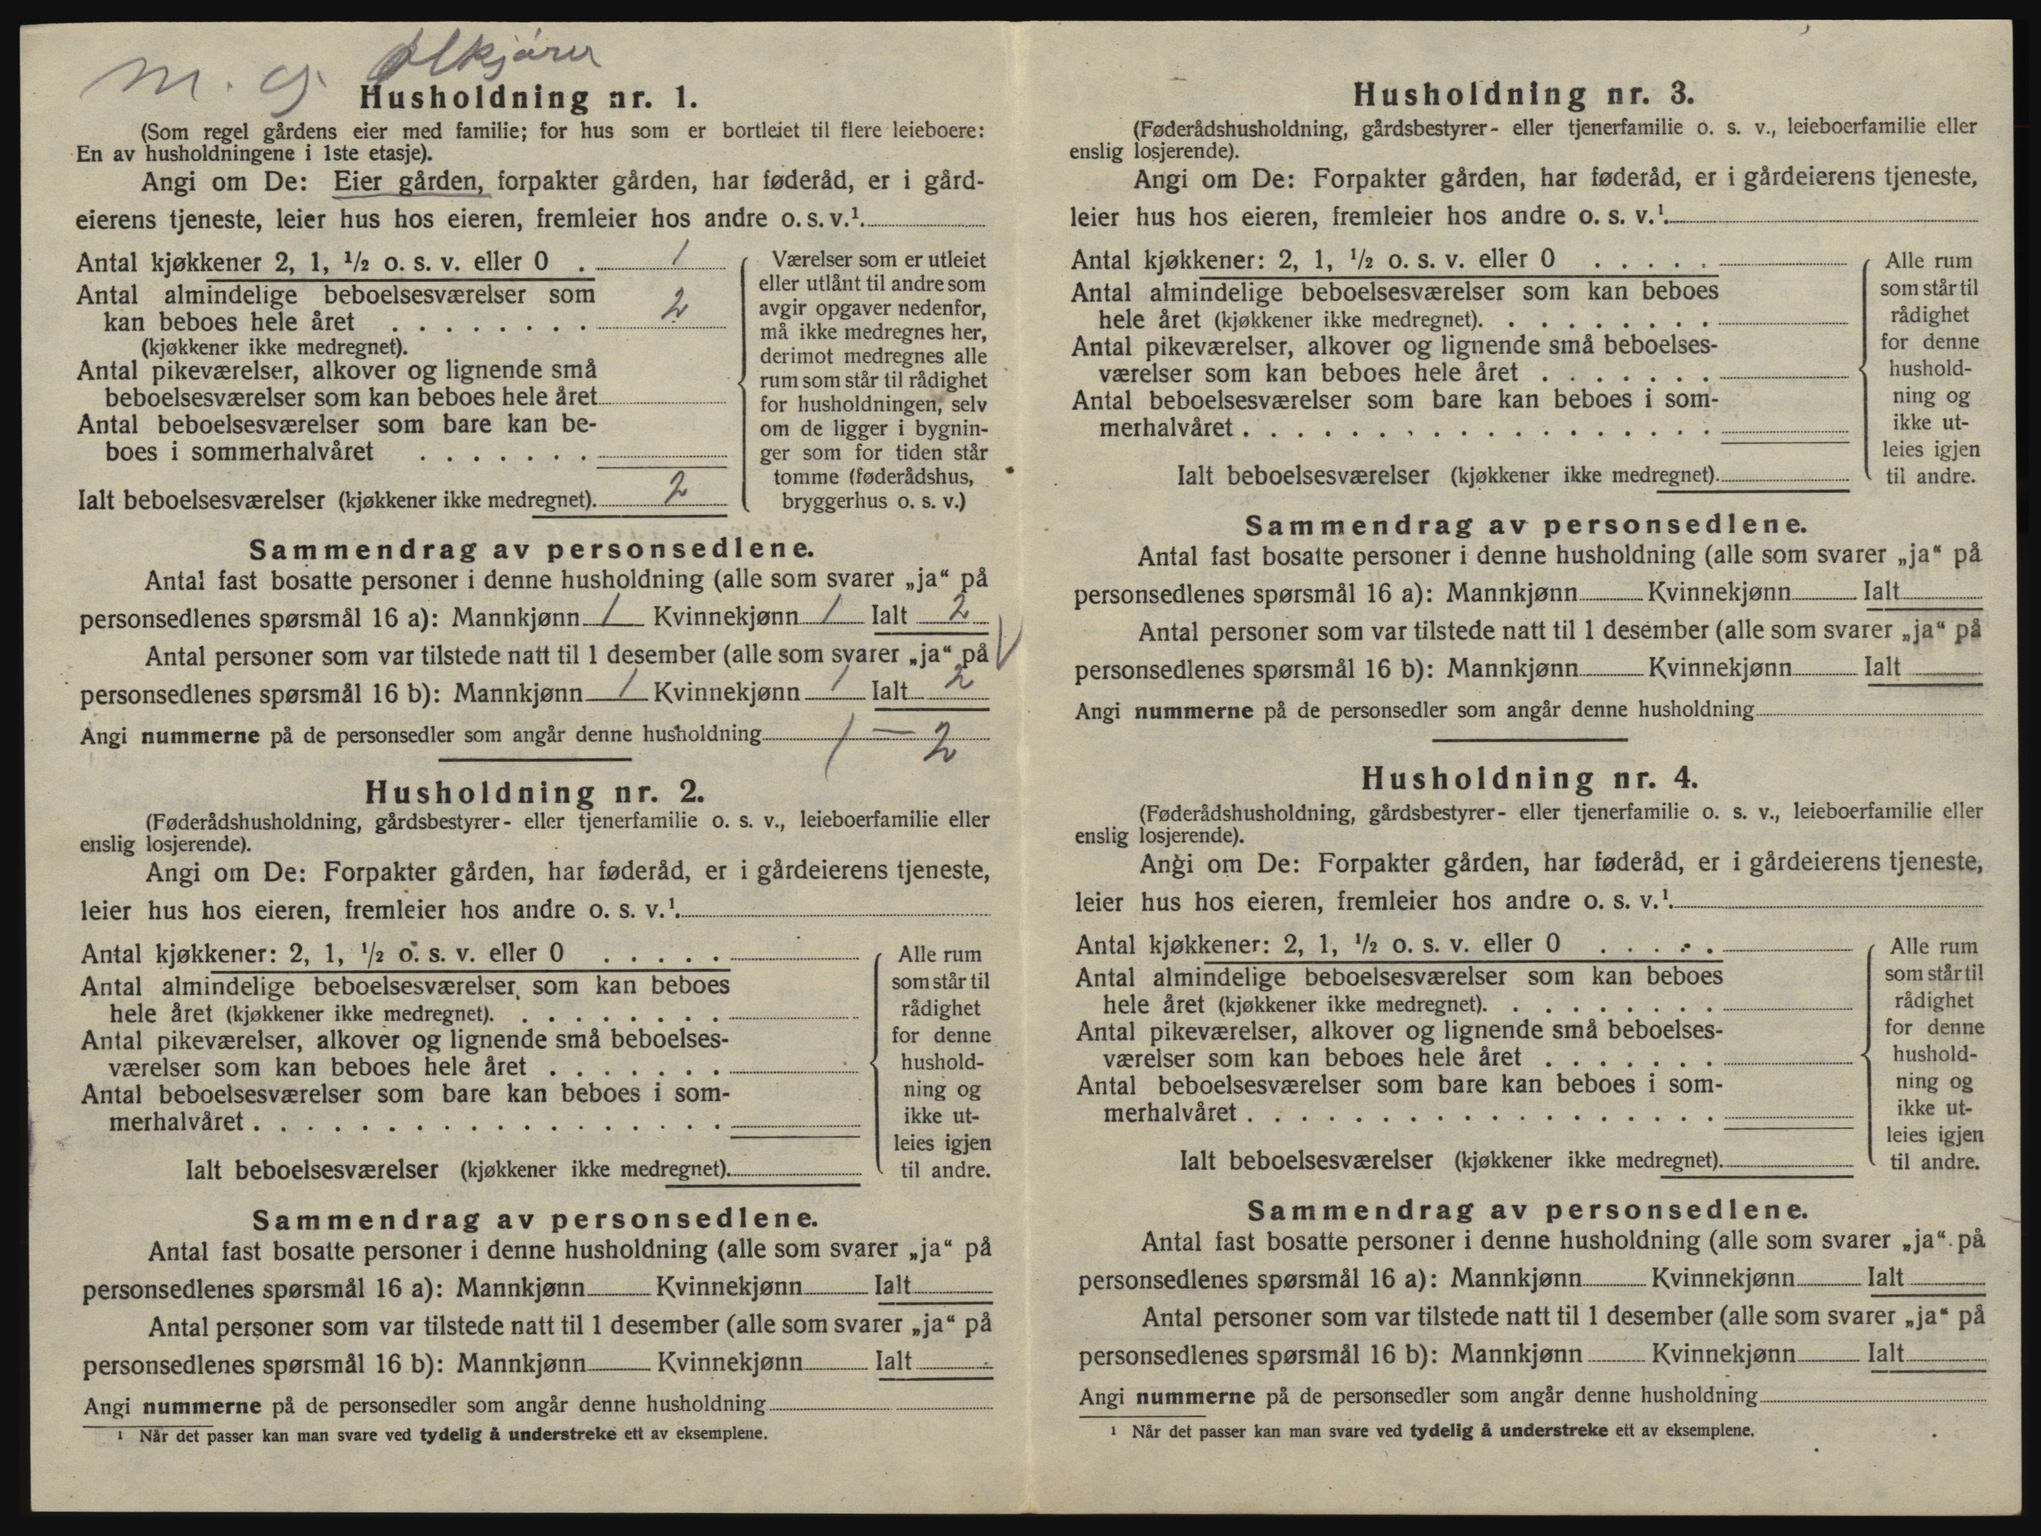 M. G. Ølkjører
Husholdning nr. 1.
(Som regel gårdens eier med familie; for hus som er bortleiet til flere leieboere:
En av husholdningene i 1ste etasje).
Angi om De: Eier gården, forpakter gården, har føderåd, er i gård-
eierens tjeneste, leier hus hos eieren, fremleier hos andre o. s. v.¹.
Antal kjøkkener 2, 1, ½ o. s. v. eller 0 . 1
Antal almindelige beboelsesværelser som
kan beboes hele året . . . . . . . . 2
(kjøkkener ikke medregnet).
Antal pikeværelser, alkover og lignende små
beboelsesværelser som kan beboes hele året
Antal beboelsesværelser som bare kan be-
boes i sommerhalvåret . . . . . . .
Ialt beboelsesværelser (kjøkkener ikke medregnet). 2
Værelser som er utleiet
eller utlånt til andre som
avgir opgaver nedenfor,
må ikke medregnes her,
derimot medregnes alle
rum som står til rådighet
for husholdningen, selv
om de ligger i bygnin-
ger som for tiden står
tomme (føderådshus,
bryggerhus o. s. v.)
Sammendrag av personsedlene.
Antal fast bosatte personer i denne husholdning (alle som svarer „ja“ på
personsedlenes spørsmål 16 a): Mannkjønn 1 Kvinnekjønn 1 Ialt 2
Antal personer som var tilstede natt til 1 desember (alle som svarer „ja“ på
personsedlenes spørsmål 16 b): Mannkjønn 1 Kvinnekjønn 1 Ialt 2
Angi nummerne på de personsedler som angår denne husholdning 1 — 2
Husholdning nr. 2.
(Føderådshusholdning, gårdsbestyrer- eller tjenerfamilie o. s. v., leieboerfamilie eller
enslig losjerende).
Angi om De: Forpakter gården, har føderåd, er i gårdeierens tjeneste,
leier hus hos eieren, fremleier hos andre o. s. v.¹.
Antal kjøkkener: 2, 1, ½ o. s. v. eller 0 . . . . .
Antal almindelige beboelsesværelser som kan beboes
hele året (kjøkkener ikke medregnet). . . . . . . . .
Antal pikeværelser, alkover og lignende små beboelses-
værelser som kan beboes hele året . . . . . . .
Antal beboelsesværelser som bare kan beboes i som-
merhalvåret . . . . . . . . . . . . . . . . . .
Ialt beboelsesværelser (kjøkkener ikke medregnet).
Alle rum
som står til
rådighet
for denne
hushold-
ning og
ikke ut-
leies igjen
til andre.
Sammendrag av personsedlene.
Antal fast bosatte personer i denne husholdning (alle som svarer „ja“ på
personsedlenes spørsmål 16 a): Mannkjønn Kvinnekjønn Ialt
Antal personer som var tilstede natt til 1 desember (alle som svarer „ja“ på
personsedlenes spørsmål 16 b): Mannkjønn Kvinnekjønn Ialt
Angi nummerne på de personsedler som angår denne husholdning
¹ Når det passer kan man svare ved tydelig å understreke ett av eksemplene.
Husholdning nr. 3.
(Føderådshusholdning, gårdsbestyrer- eller tjenerfamilie o. s. v., leieboerfamilie eller
enslig losjerende).
Angi om De: Forpakter gården, har føderåd, er i gårdeierens tjeneste,
leier hus hos eieren, fremleier hos andre o. s. v.¹.
Antal kjøkkener: 2, 1, ½ o. s. v. eller 0 . . . . .
Antal almindelige beboelsesværelser som kan beboes
hele året (kjøkkener ikke medregnet). . . . . . . . .
Antal pikeværelser, alkover og lignende små beboelses-
værelser som kan beboes hele året . . . . . . .
Antal beboelsesværelser som bare kan beboes i som-
merhalvåret . . . . . . . . . . . . . . . . . .
Ialt beboelsesværelser (kjøkkener ikke medregnet).
Alle rum
som står til
rådighet
for denne
hushold-
ning og
ikke ut-
leies igjen
til andre.
Sammendrag av personsedlene.
Antal fast bosatte personer i denne husholdning (alle som svarer „ja“ på
personsedlenes spørsmål 16 a): Mannkjønn Kvinnekjønn Ialt
Antal personer som var tilstede natt til 1 desember (alle som svarer „ja“ på
personsedlenes spørsmål 16 b): Mannkjønn Kvinnekjønn Ialt
Angi nummerne på de personsedler som angår denne husholdning
Husholdning nr. 4.
(Føderådshusholdning, gårdsbestyrer- eller tjenerfamilie o. s. v., leieboerfamilie eller
enslig losjerende).
Angi om De: Forpakter gården, har føderåd, er i gårdeierens tjeneste,
leier hus hos eieren, fremleier hos andre o. s. v.¹.
Antal kjøkkener: 2, 1, ½ o. s. v. eller 0 . . . . .
Antal almindelige beboelsesværelser som kan beboes
hele året (kjøkkener ikke medregnet). . . . . . . . .
Antal pikeværelser, alkover og lignende små beboelses-
værelser som kan beboes hele året . . . . . . .
Antal beboelsesværelser som bare kan beboes i som-
merhalvåret . . . . . . . . . . . . . . . . . .
Ialt beboelsesværelser (kjøkkener ikke medregnet).
Alle rum
som står til
rådighet
for denne
hushold-
ning og
ikke ut-
leies igjen
til andre.
Sammendrag av personsedlene.
Antal fast bosatte personer i denne husholdning (alle som svarer „ja“ på
personsedlenes spørsmål 16 a): Mannkjønn Kvinnekjønn Ialt
Antal personer som var tilstede natt til 1 desember (alle som svarer „ja“ på
personsedlenes spørsmål 16 b): Mannkjønn Kvinnekjønn Ialt
Angi nummerne på de personsedler som angår denne husholdning
¹ Når det passer kan man svare ved tydelig å understreke ett av eksemplene.